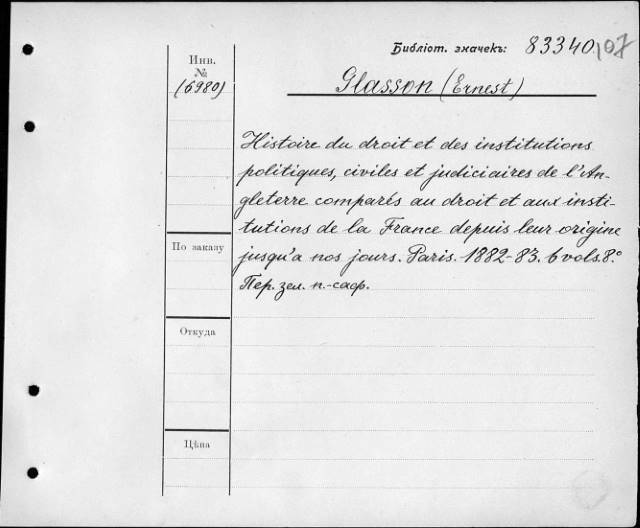 Библіот. значекъ: 83340/07
Инв.
№
(6980)
Glasson (Ernest)
Histoire du droit et des institutions
politiques, civiles et judiciaires de l'An-
gleterre comparés au droit et aux insti-
tutions de la France depuis leur origine
jusqu'a nos jours. Paris. 1882-83. 6 vols. 8.°
Пер. зел. п.-саф.
По заказу
Откуда
Цѣна